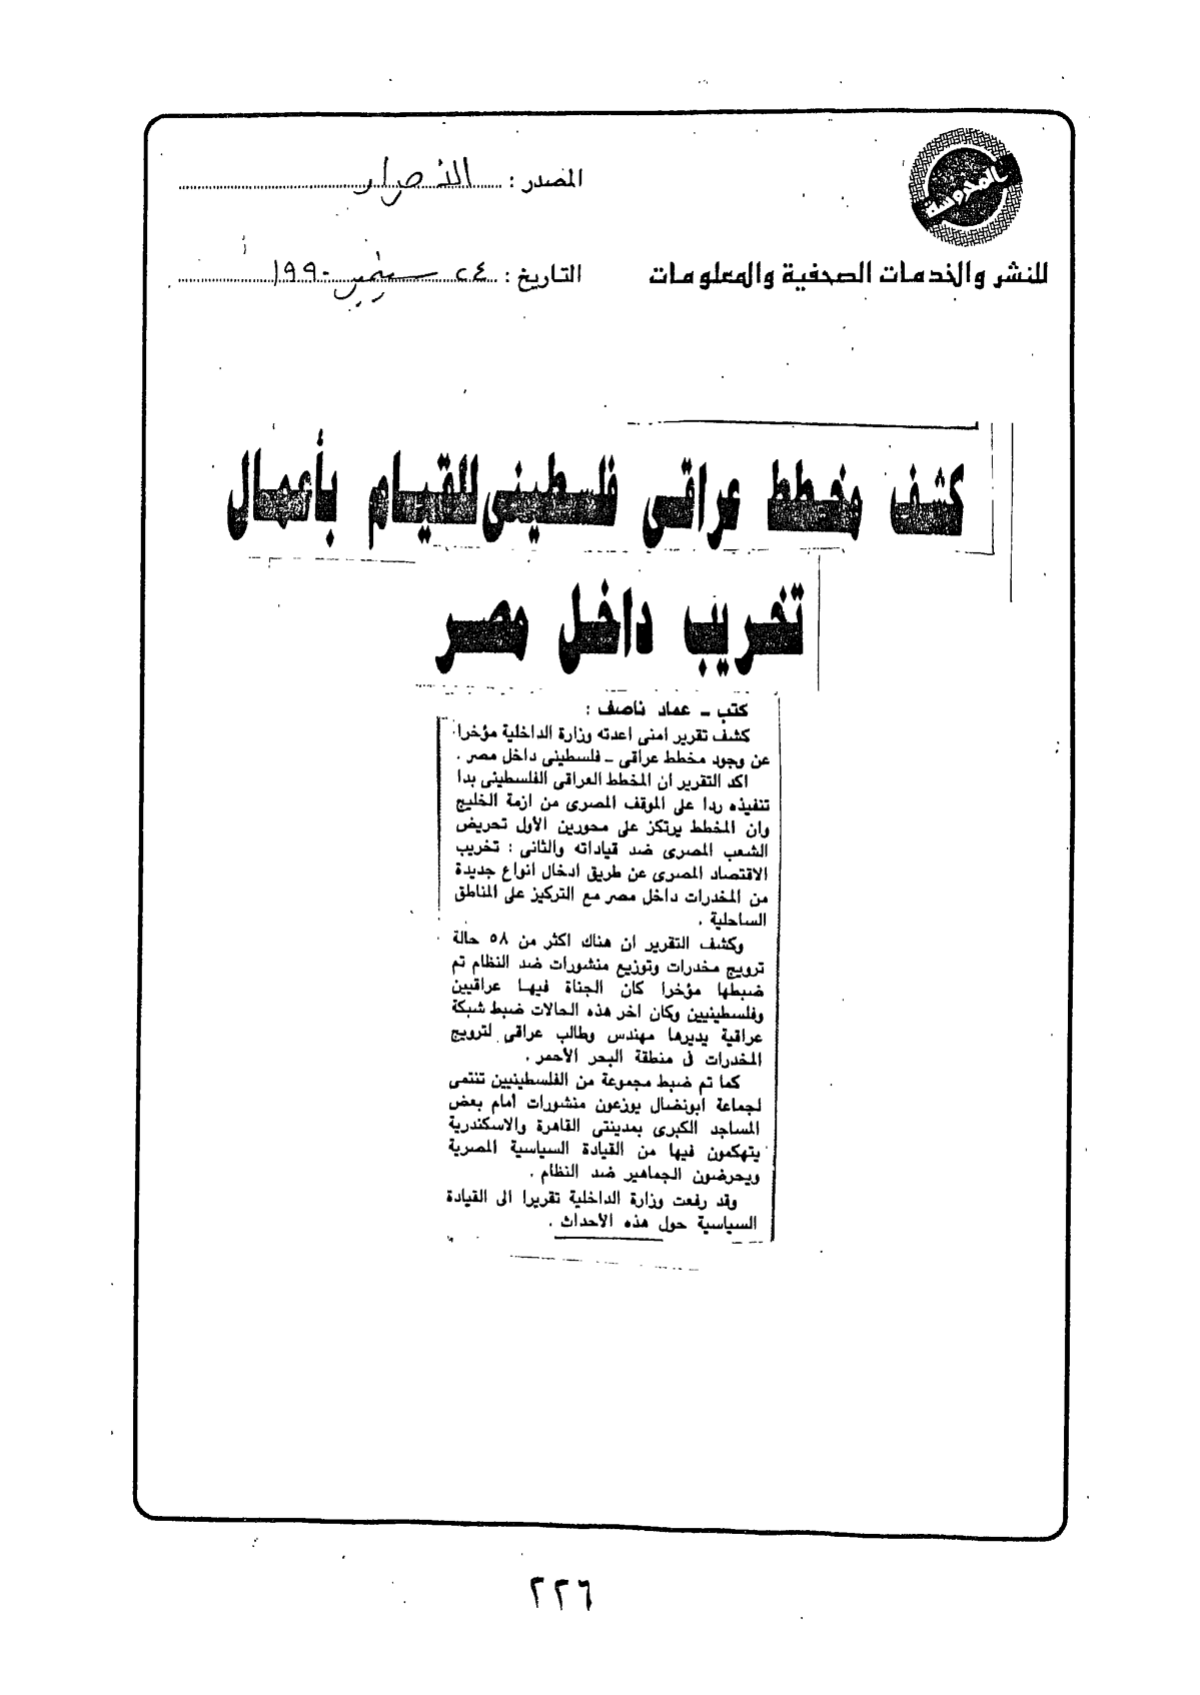 المحروسة
للنشر والخدمات الصحفية والمعلومات
المصدر : الأحرار
التاريخ : ٢٤ سبتمبر ١٩٩٠
كشف مخطط عراقى فلسطينى للقيام بأعمال
تخريب داخل مصر
كتب ــ عماد ناصف :
كشف تقرير امنى اعدته وزارة الداخلية مؤخرا
عن وجود مخطط عراقى ــ فلسطينى داخل مصر .
اكد التقرير ان المخطط العراقى الفلسطينى بدا
تنفيذه ردا على الموقف المصرى من ازمة الخليج
وان المخطط يرتكز على محورين الأول تحريض
الشعب المصرى ضد قياداته والثانى : تخريب
الاقتصاد المصرى عن طريق ادخال انواع جديدة
من المخدرات داخل مصر مع التركيز على المناطق
الساحلية .
وكشف التقرير ان هناك اكثر من ٥٨ حالة
ترويج مخدرات وتوزيع منشورات ضد النظام تم
ضبطها مؤخرا كان الجناة فيها عراقيين
وفلسطينيين وكان اخر هذه الحالات ضبط شبكة
عراقية يديرها مهندس وطالب عراقى لترويج
المخدرات فى منطقة البحر الأحمر .
كما تم ضبط مجموعة من الفلسطينيين تنتمى
لجماعة ابونضال يوزعون منشورات أمام بعض
المساجد الكبرى بمدينتى القاهرة والاسكندرية
يتهكمون فيها من القيادة السياسية المصرية
ويحرضون الجماهير ضد النظام .
وقد رفعت وزارة الداخلية تقريرا الى القيادة
السياسية حول هذه الأحداث .
٢٢٦